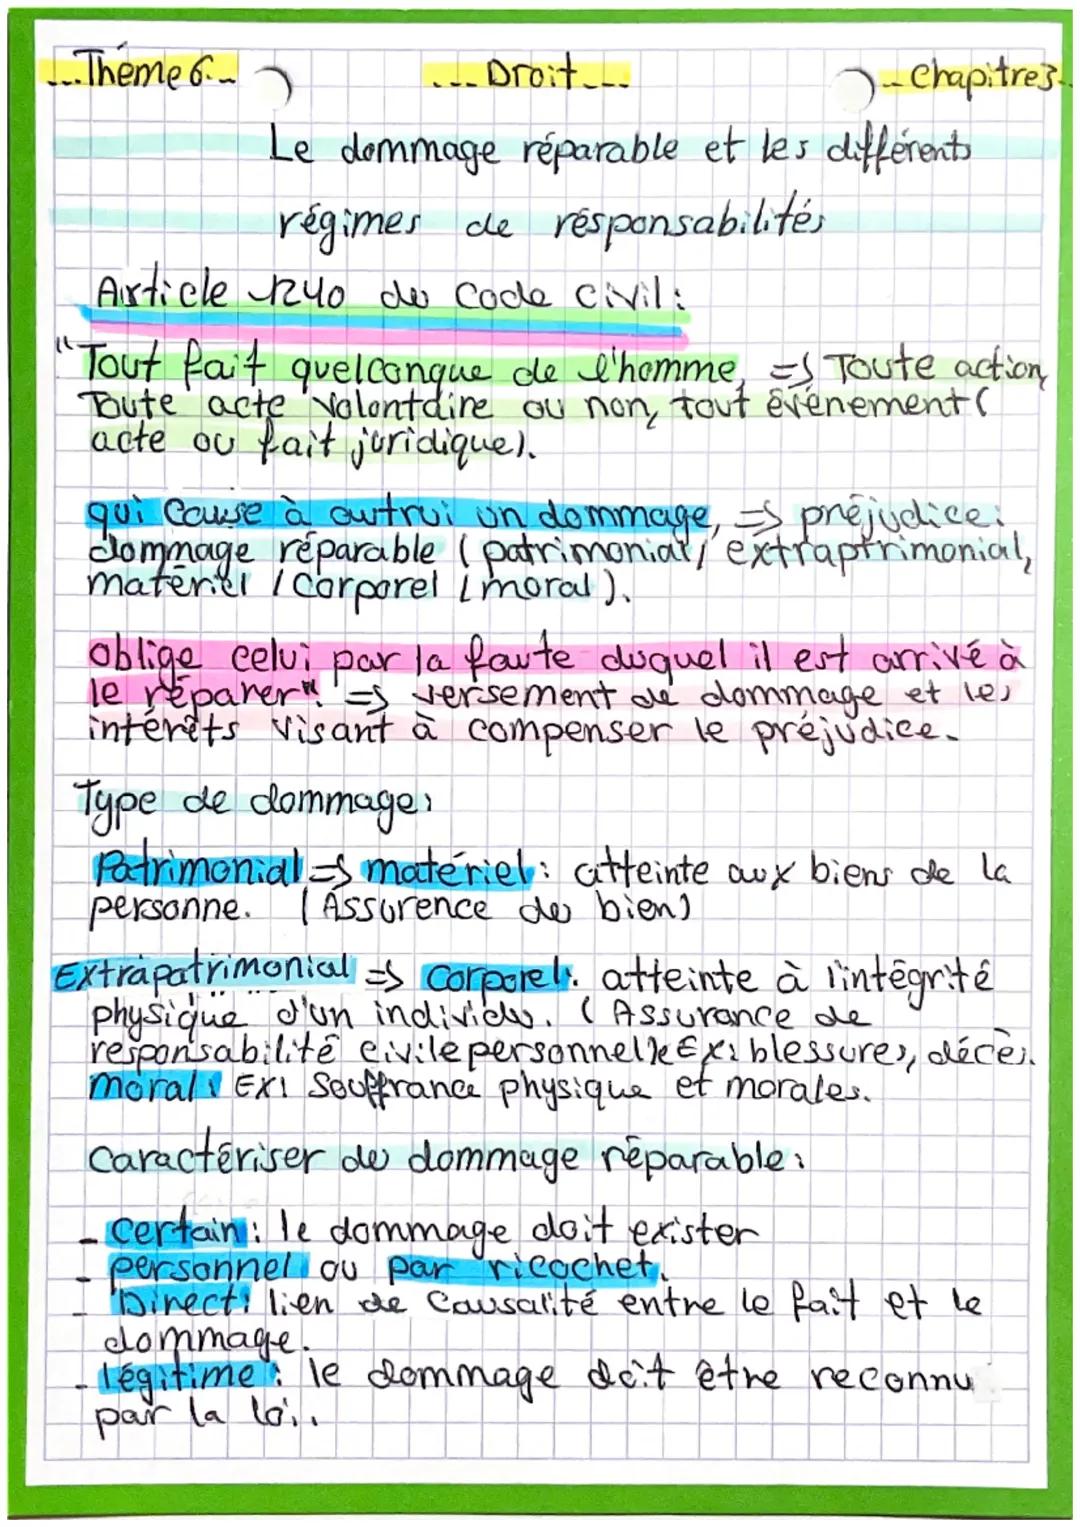 Thème 6 Droit Chapitre 3
Le dommage réparable et les différents
régimes de résponsabilités
Article 1240 du Code Civil :
"Tout fait quelconque de l'homme, => Toute action,
Toute acte volontaire ou non, tout évènement (
acte ou fait juridique).
qui cause à autrui un dommage, => préjudice :
dommage réparable (patrimonial / extraptrimonial,
matériel / Corporel / moral).
oblige celui par la faute duquel il est arrivé à
le réparer". => versement de dommage et les
intérêts visant à compenser le préjudice.
Type de dommage :
Patrimonial => matériel : atteinte aux biens de la
personne. (Assurence de bien)
Extrapatrimonial => corporel : atteinte à l'intégrité
physique d'un individu. (Assurance de
responsabilité civile personnelle Ex : blessures, décès.
moral : Ex : Souffrance physique et morales.
Caractériser du dommage réparable :
- Certain : le dommage doit exister
- personnel ou par ricochet.
- Direct : lien de causalité entre le fait et le
dommage.
- légitime : le dommage doit être reconnu
par la loi.